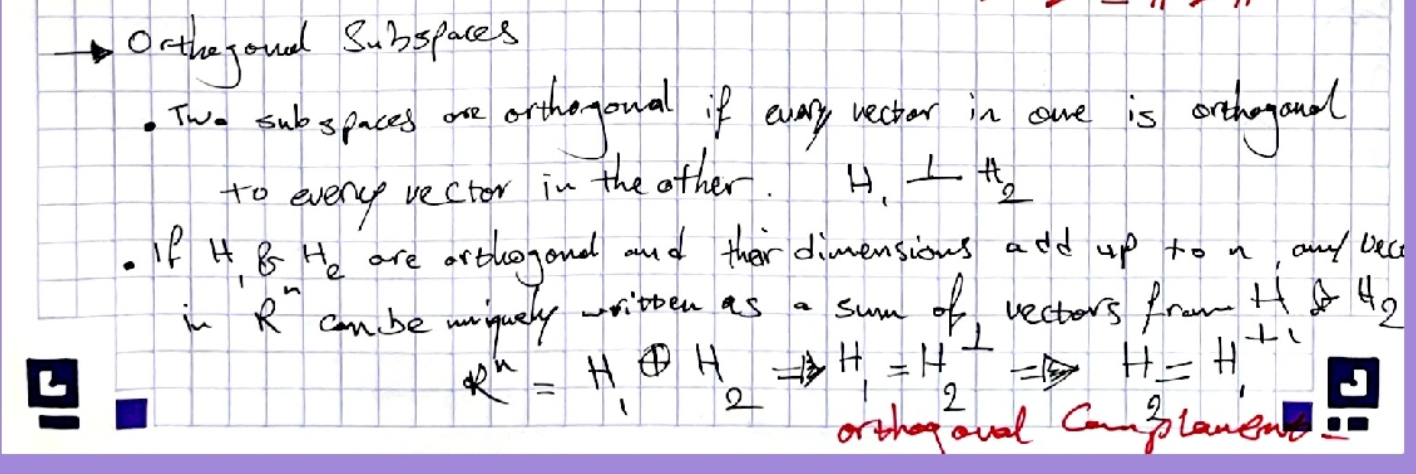 → Orthogonal Subspaces
• Two subspaces are orthogonal if every vector in one is orthogonal
to every vector in the other. H₁ ⊥ H₂
• If H₁ & H₂ are orthogonal and their dimensions add up to n, any vec
in Rⁿ can be uniquely written as a sum of vectors from H₁ & H₂
Rⁿ = H₁ ⊕ H₂ ⇒ H₁ = H₂^⊥ ⇒ H₂ = H₁^⊥
orthogonal Complament